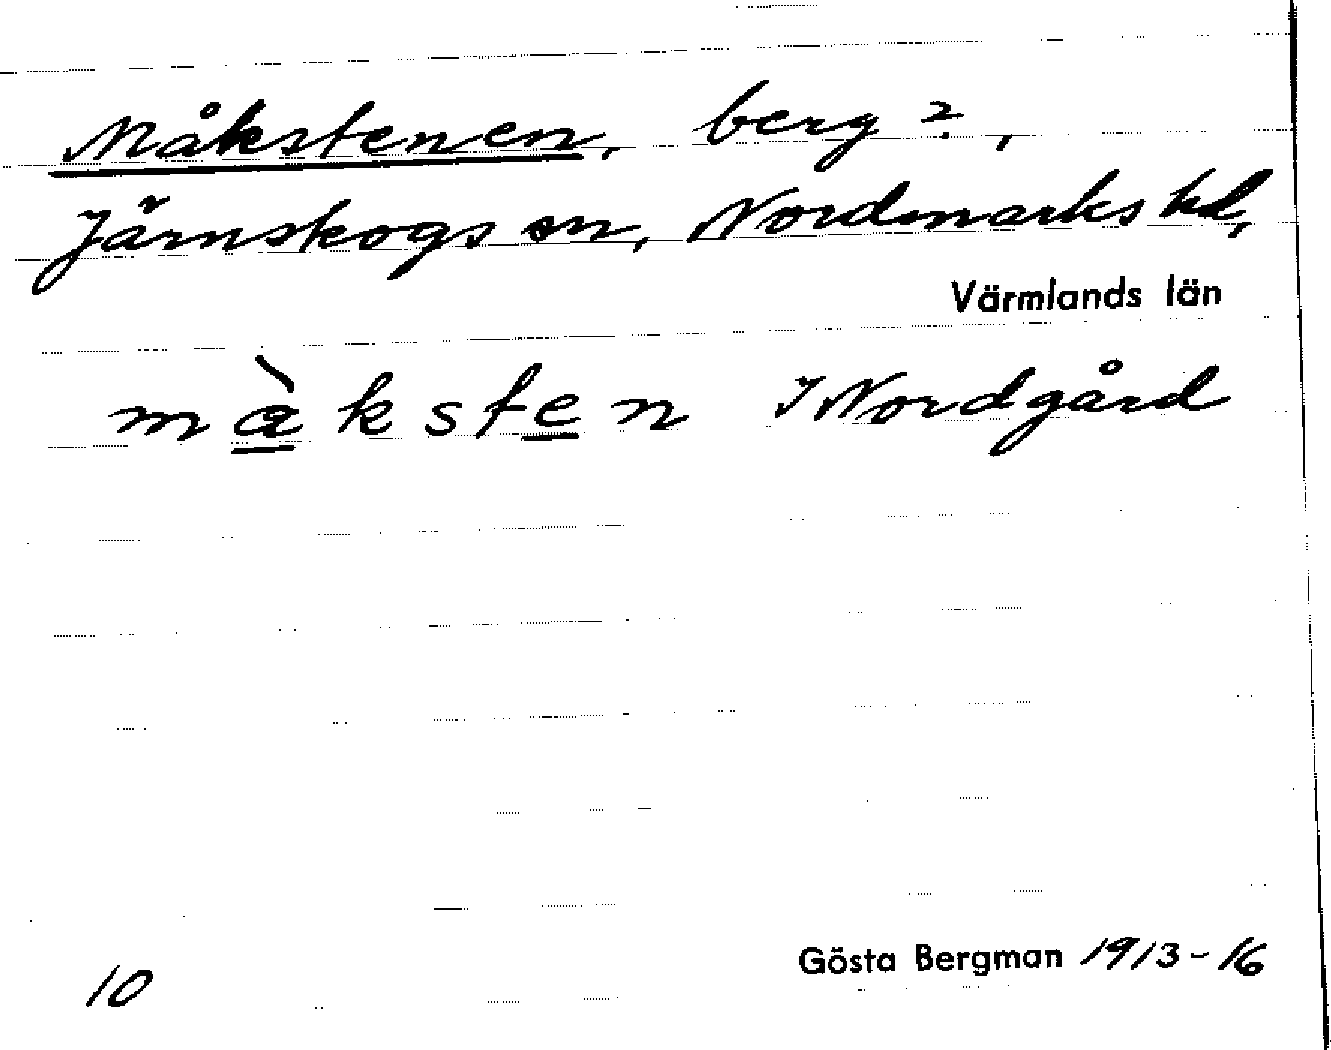 Måkstenen, berg?,
Järnskogs sn, Nordmarks hd,
Värmlands län
màksten I Nordgård
10
Gösta Bergman 1913-16